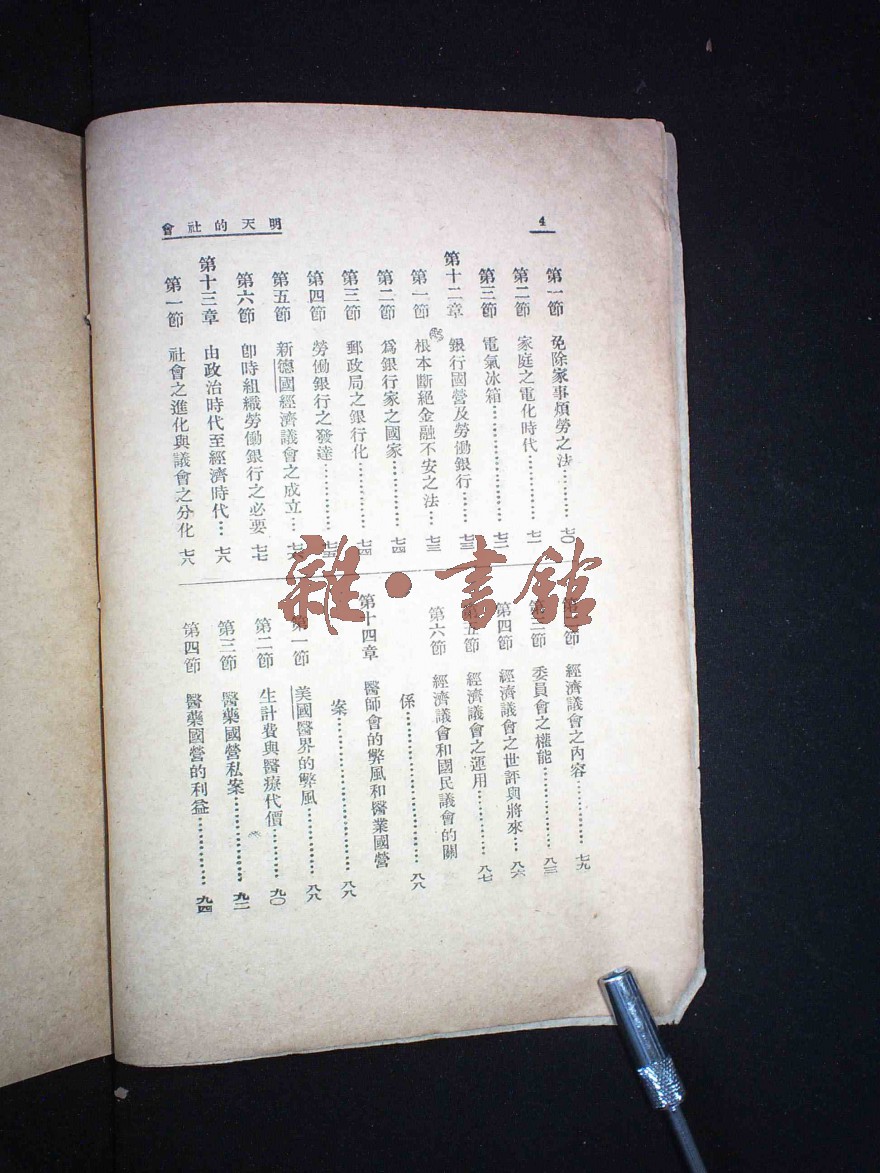 4
明天的社會
第一節 免除家事煩勞之法…………七〇
第二節 家庭之電化時代…………七一
第三節 電氣冰箱…………………七二
第十二章 銀行國營及勞働銀行……七三
第一節 根本斷絕金融不安之法…七三
第二節 爲銀行家之國家…………七四
第三節 郵政局之銀行化…………七四
第四節 勞働銀行之發達…………七五
第五節 新德國經濟議會之成立…七六
第六節 卽時組織勞働銀行之必要 七七
第十三章 由政治時代至經濟時代…七八
第一節 社會之進化與議會之分化 七八
第二節 經濟議會之內容…………七九
第三節 委員會之權能……………八三
第四節 經濟議會之世評與將來…八六
第五節 經濟議會之運用…………八七
第六節 經濟議會和國民議會的關
係…………………………八八
第十四章 醫師會的弊風和醫業國營
案…………………………八八
第一節 美國醫界的弊風…………八八
第二節 生計費與醫療代價………九〇
第三節 醫藥國營私案……………九二
第四節 醫藥國營的利益…………九四
雜·書館